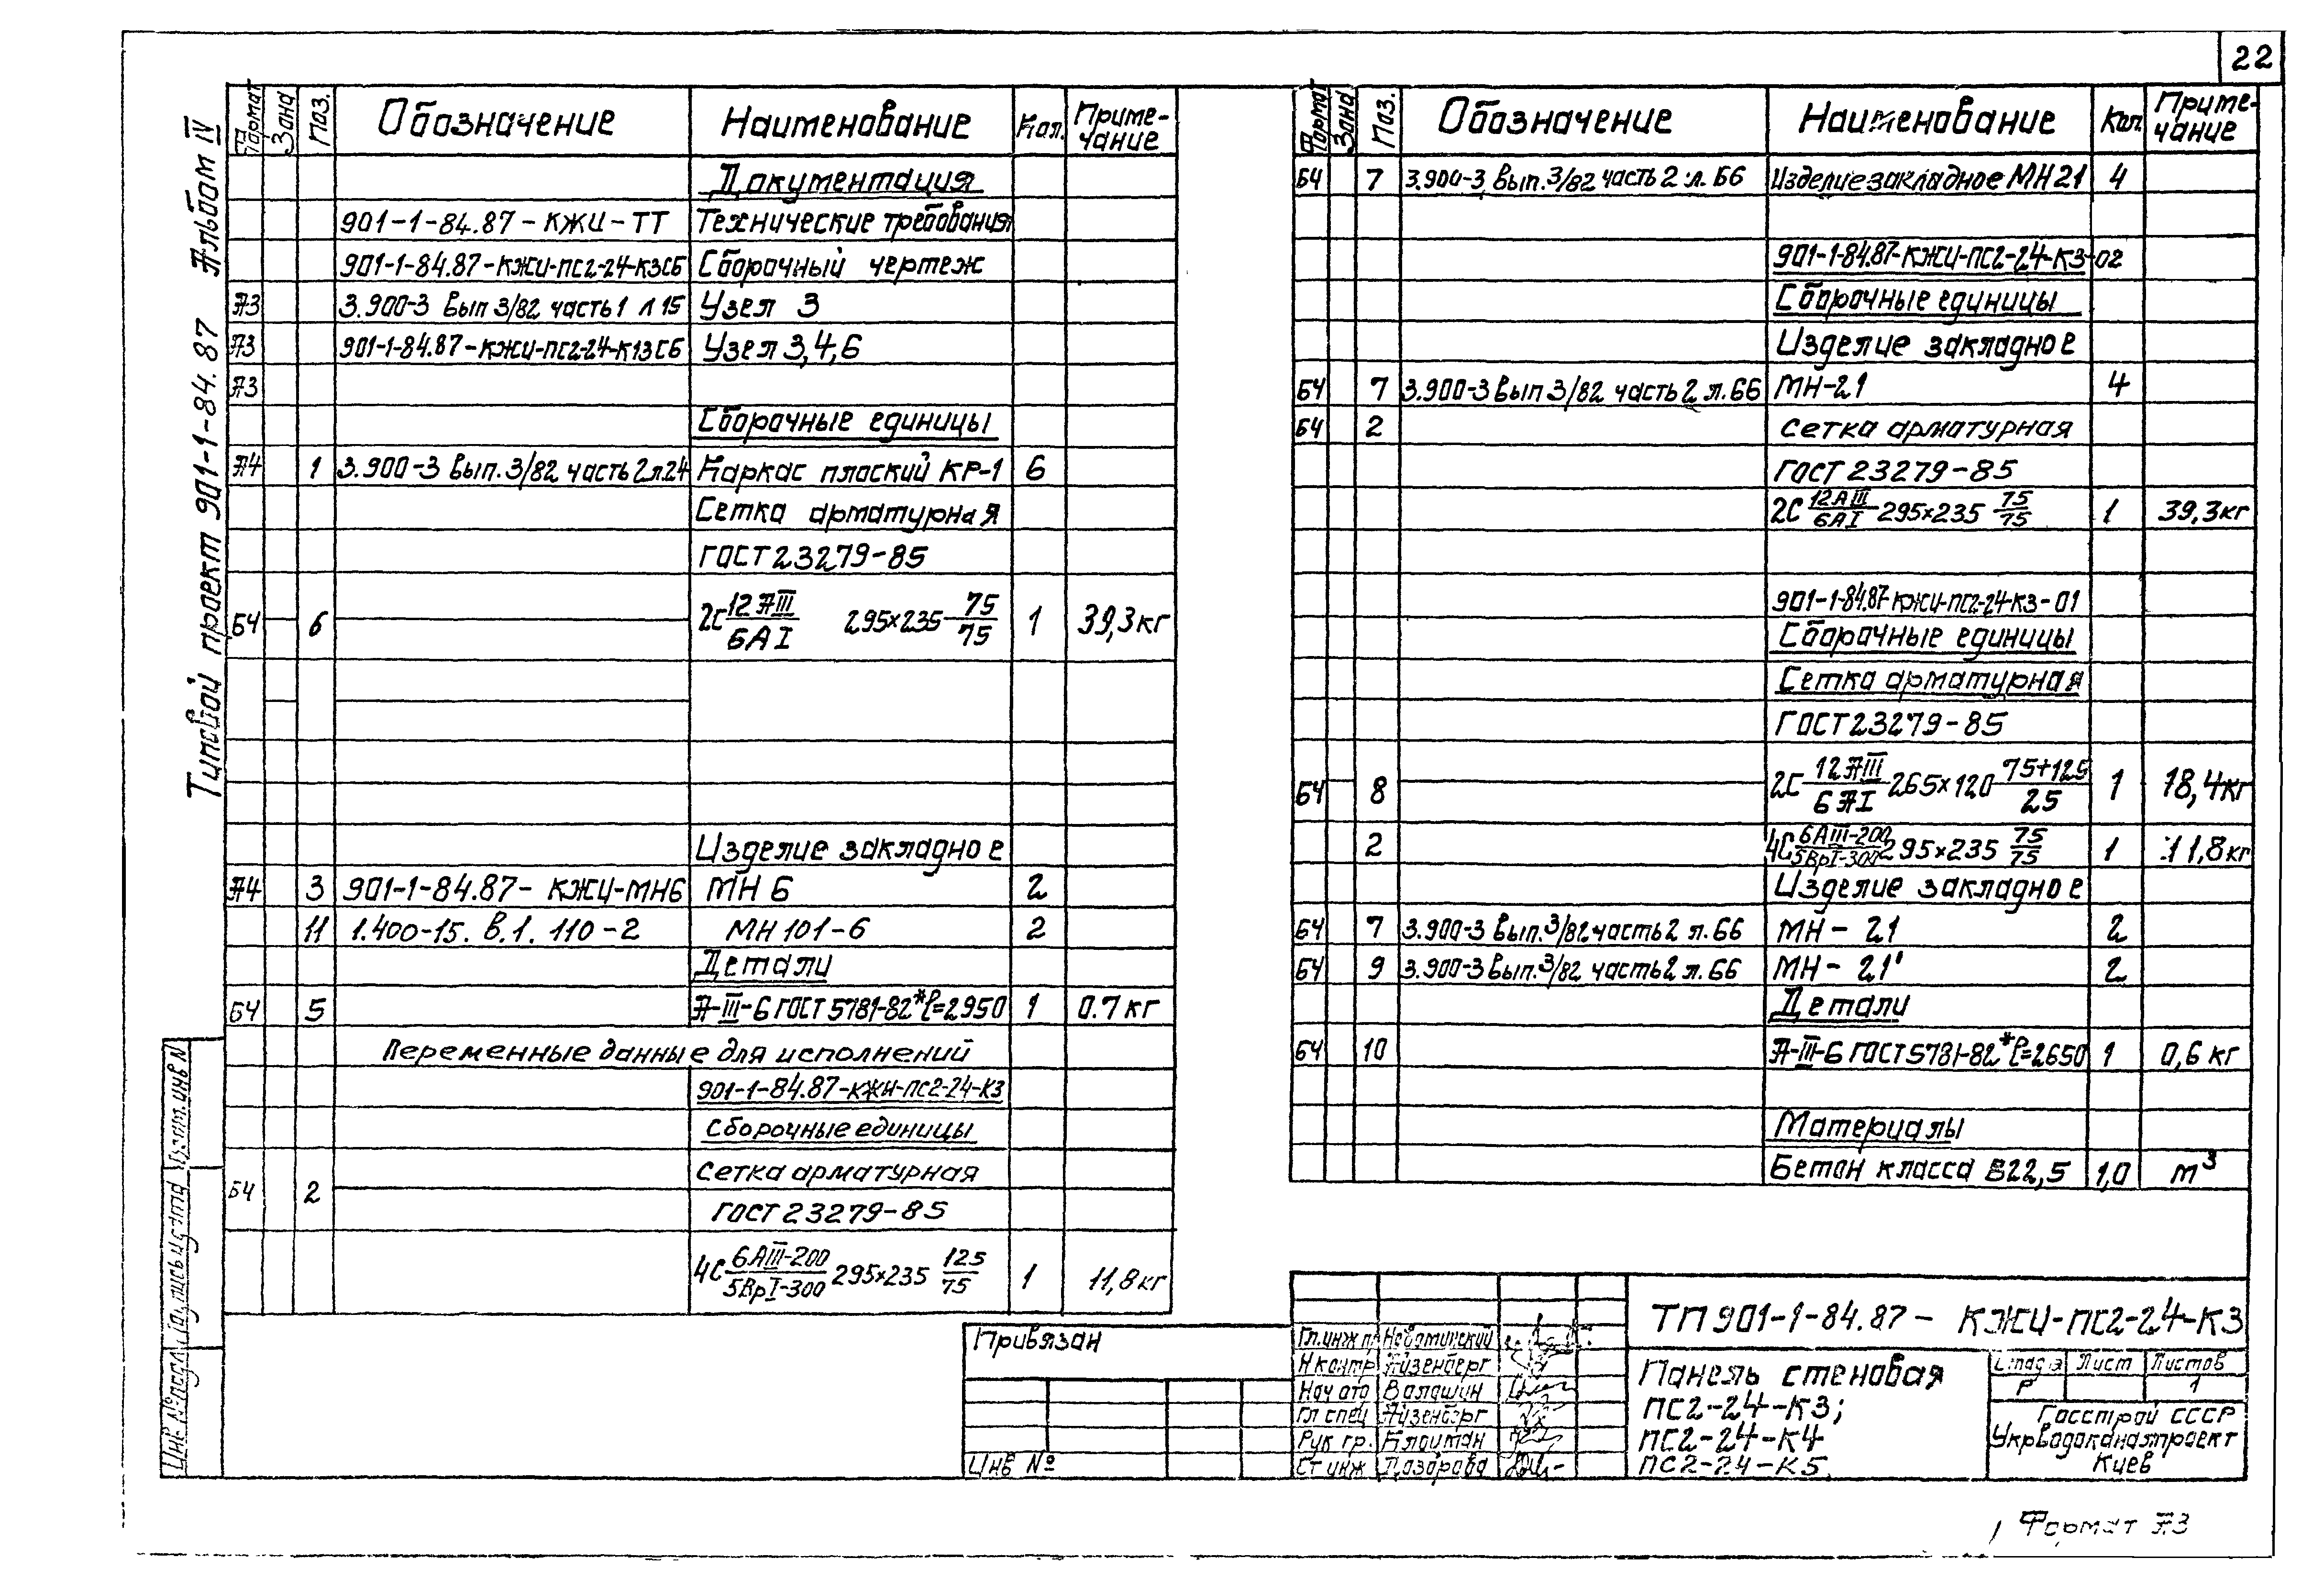 22
Типовой проект 901-1-84.87 Альбом IV
Формат Зона Поз. Обозначение Наименование Кол. Приме-
чание
Документация
901-1-84.87-КЖИ-ТТ Технические требования
901-1-84.87-КЖИ-ПС2-24-К3СБ Сборочный чертеж
А3 3.900-3 Вып 3/82 часть 1 л 15 Узел 3
А3 901-1-84.87-КЖИ-ПС2-24-К13СБ Узел 3,4,6
А3
Сборочные единицы
А4 1 3.900-3 Вып. 3/82 часть 2 л.24 Каркас плоский КР-1 6
Сетка арматурная
ГОСТ 23279-85
Б4 6 2С 12АIII/6АI 295×235 75/75 1 39,3кг
Изделие закладное
А4 3 901-1-84.87-КЖИ-МН6 МН 6 2
11 1.400-15. В.1. 110-2 МН 101-6 2
Детали
Б4 5 А-III-6 ГОСТ 5781-82* ℓ=2950 1 0.7 кг
Переменные данные для исполнений
901-1-84.87-КЖИ-ПС2-24-К3
Сборочные единицы
Б4 2 Сетка арматурная
ГОСТ 23279-85
4С 6АIII-200/5ВрI-300 295×235 125/75 1 11,8кг
Формат Зона Поз. Обозначение Наименование Кол. Приме-
чание
Б4 7 3.900-3 Вып. 3/82 часть 2 л. 66 Изделие закладное МН21 4
901-1-84.87-КЖИ-ПС2-24-К3-02
Сборочные единицы
Изделие закладное
Б4 7 3.900-3 Вып 3/82 часть 2 л.66 МН-21 4
Б4 2 Сетка арматурная
ГОСТ 23279-85
2С 12АIII/6АI 295×235 75/75 1 39,3кг
901-1-84.87-КЖИ-ПС2-24-К3-01
Сборочные единицы
Сетка арматурная
ГОСТ 23279-85
Б4 8 2С 12АIII/6АI 265×120 75+125/25 1 18,4кг
2 4С 6АIII-200/5ВрI-300 295×235 75/75 1 11,8кг
Изделие закладное
Б4 7 3.900-3 Вып. 3/82 часть 2 л.66 МН-21 2
Б4 9 3.900-3 Вып. 3/82 часть 2 л.66 МН-21' 2
Детали
Б4 10 А-III-6 ГОСТ 5781-82* ℓ=2650 1 0,6 кг
Материалы
Бетон класса В22,5 1,0 м³
Взам. инв N
Подпись и дата
Инв. № подл
Привязан
Инв №
Гл. инж пр
Н контр Айзенберг
Нач отд Валашин
Гл спец Айзенберг
Рук гр. Клоцман
Ст инж
ТП 901-1-84.87 - КЖИ-ПС2-24-К3
Панель стеновая
ПС2-24-К3;
ПС2-24-К4
ПС2-24-К5.
Стадия Лист Листов
Р 1
Госстрой СССР
Укрводоканалпроект
Киев
Формат А3